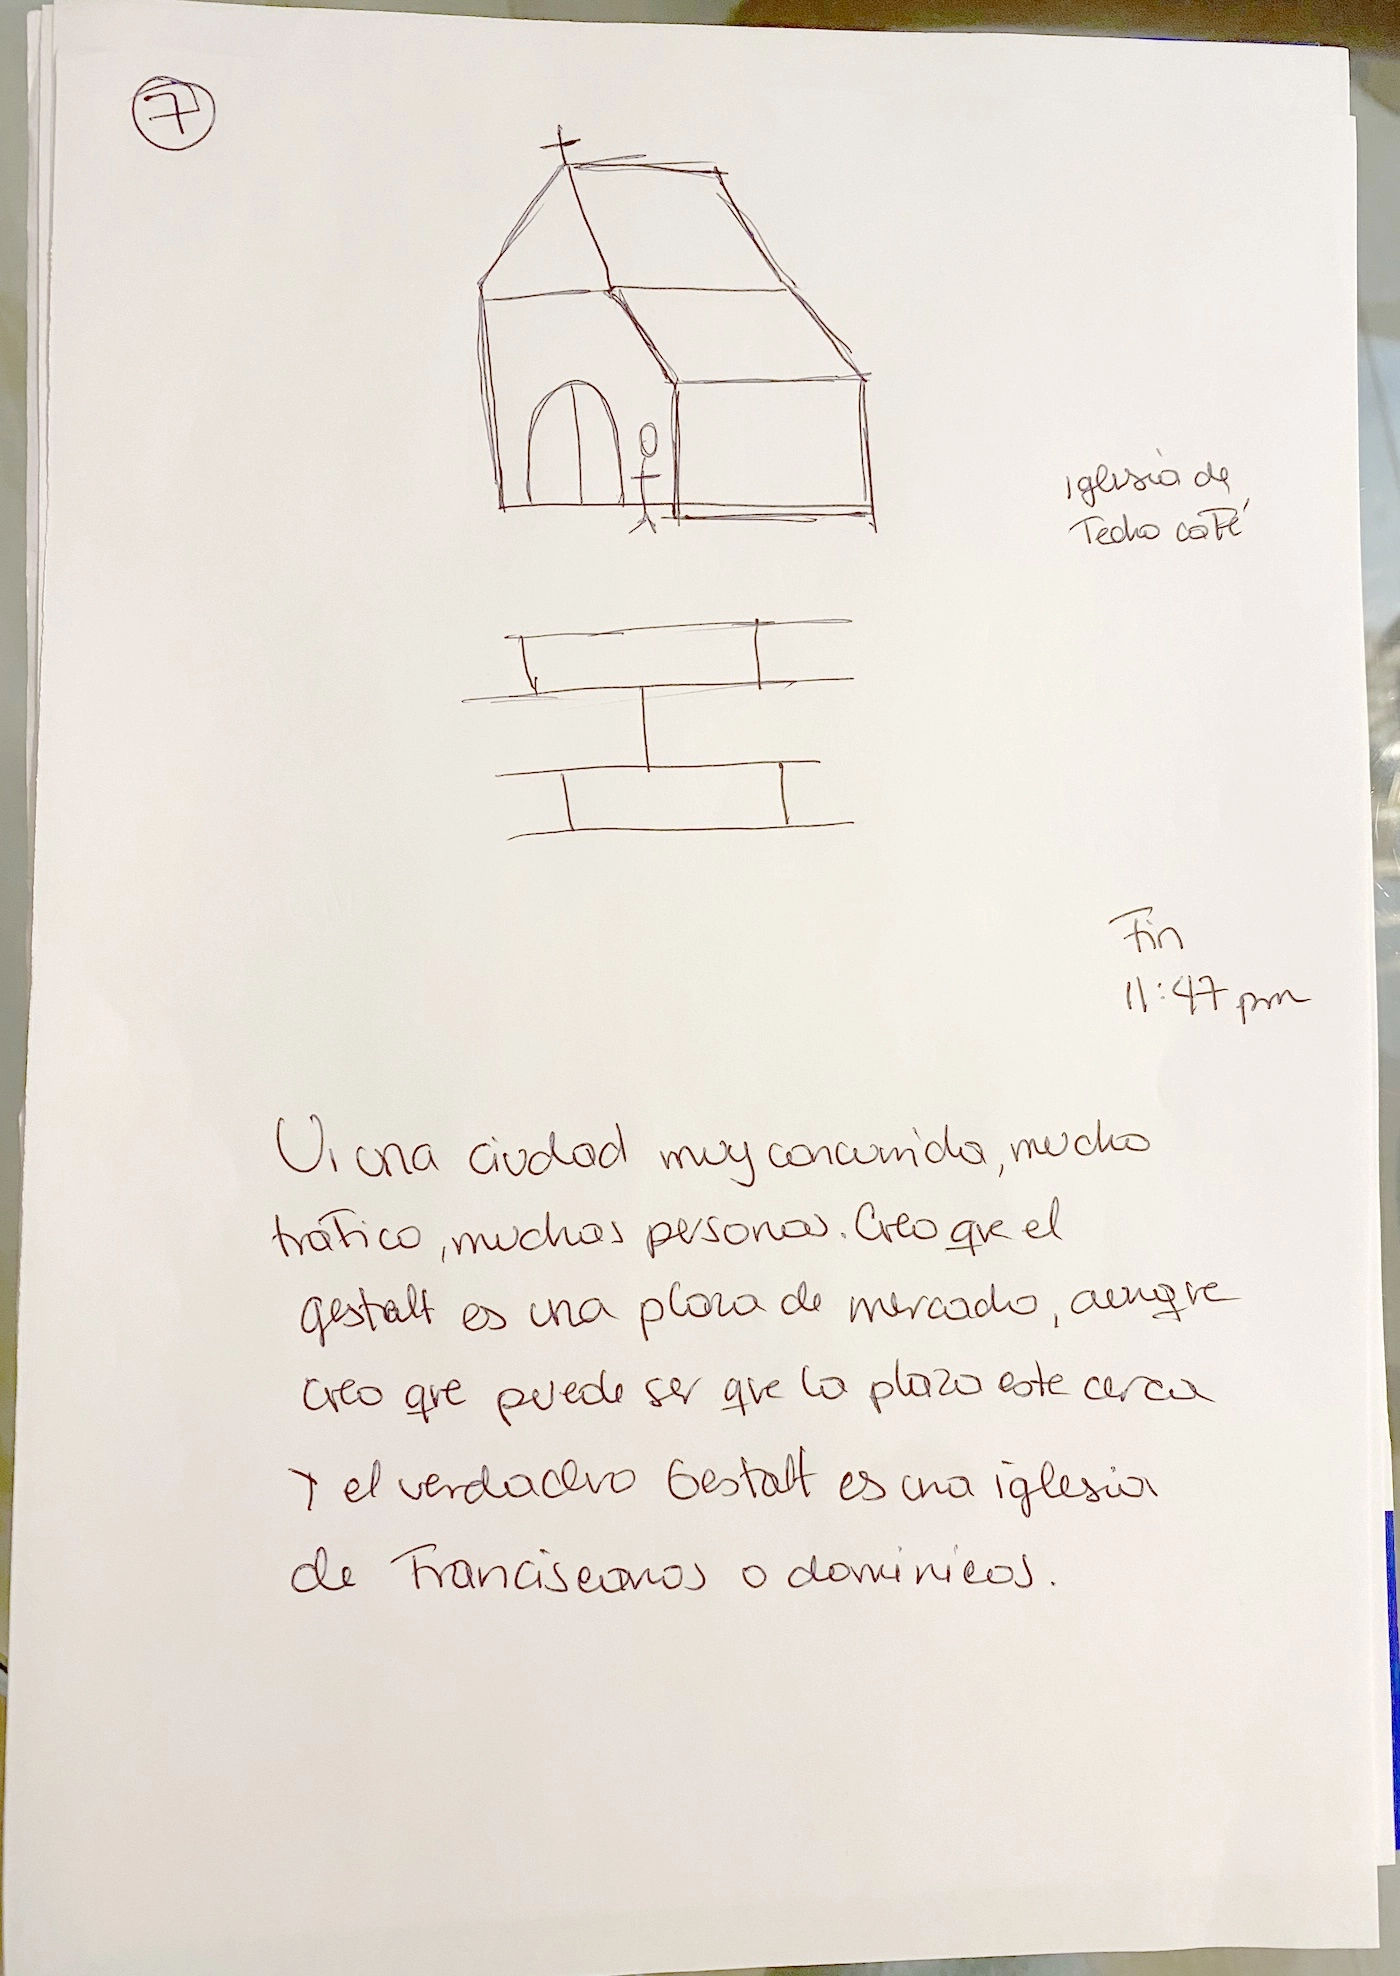 7
iglesia de
Techo café
Fin
11:47 pm
Vi una ciudad muy concurrida, mucho
tráfico, muchas personas. Creo que el
gestalt es una plaza de mercado, aunque
creo que puede ser que la plaza este cerca
y el verdadero Gestalt es una iglesia
de Franciscanos o dominicos.